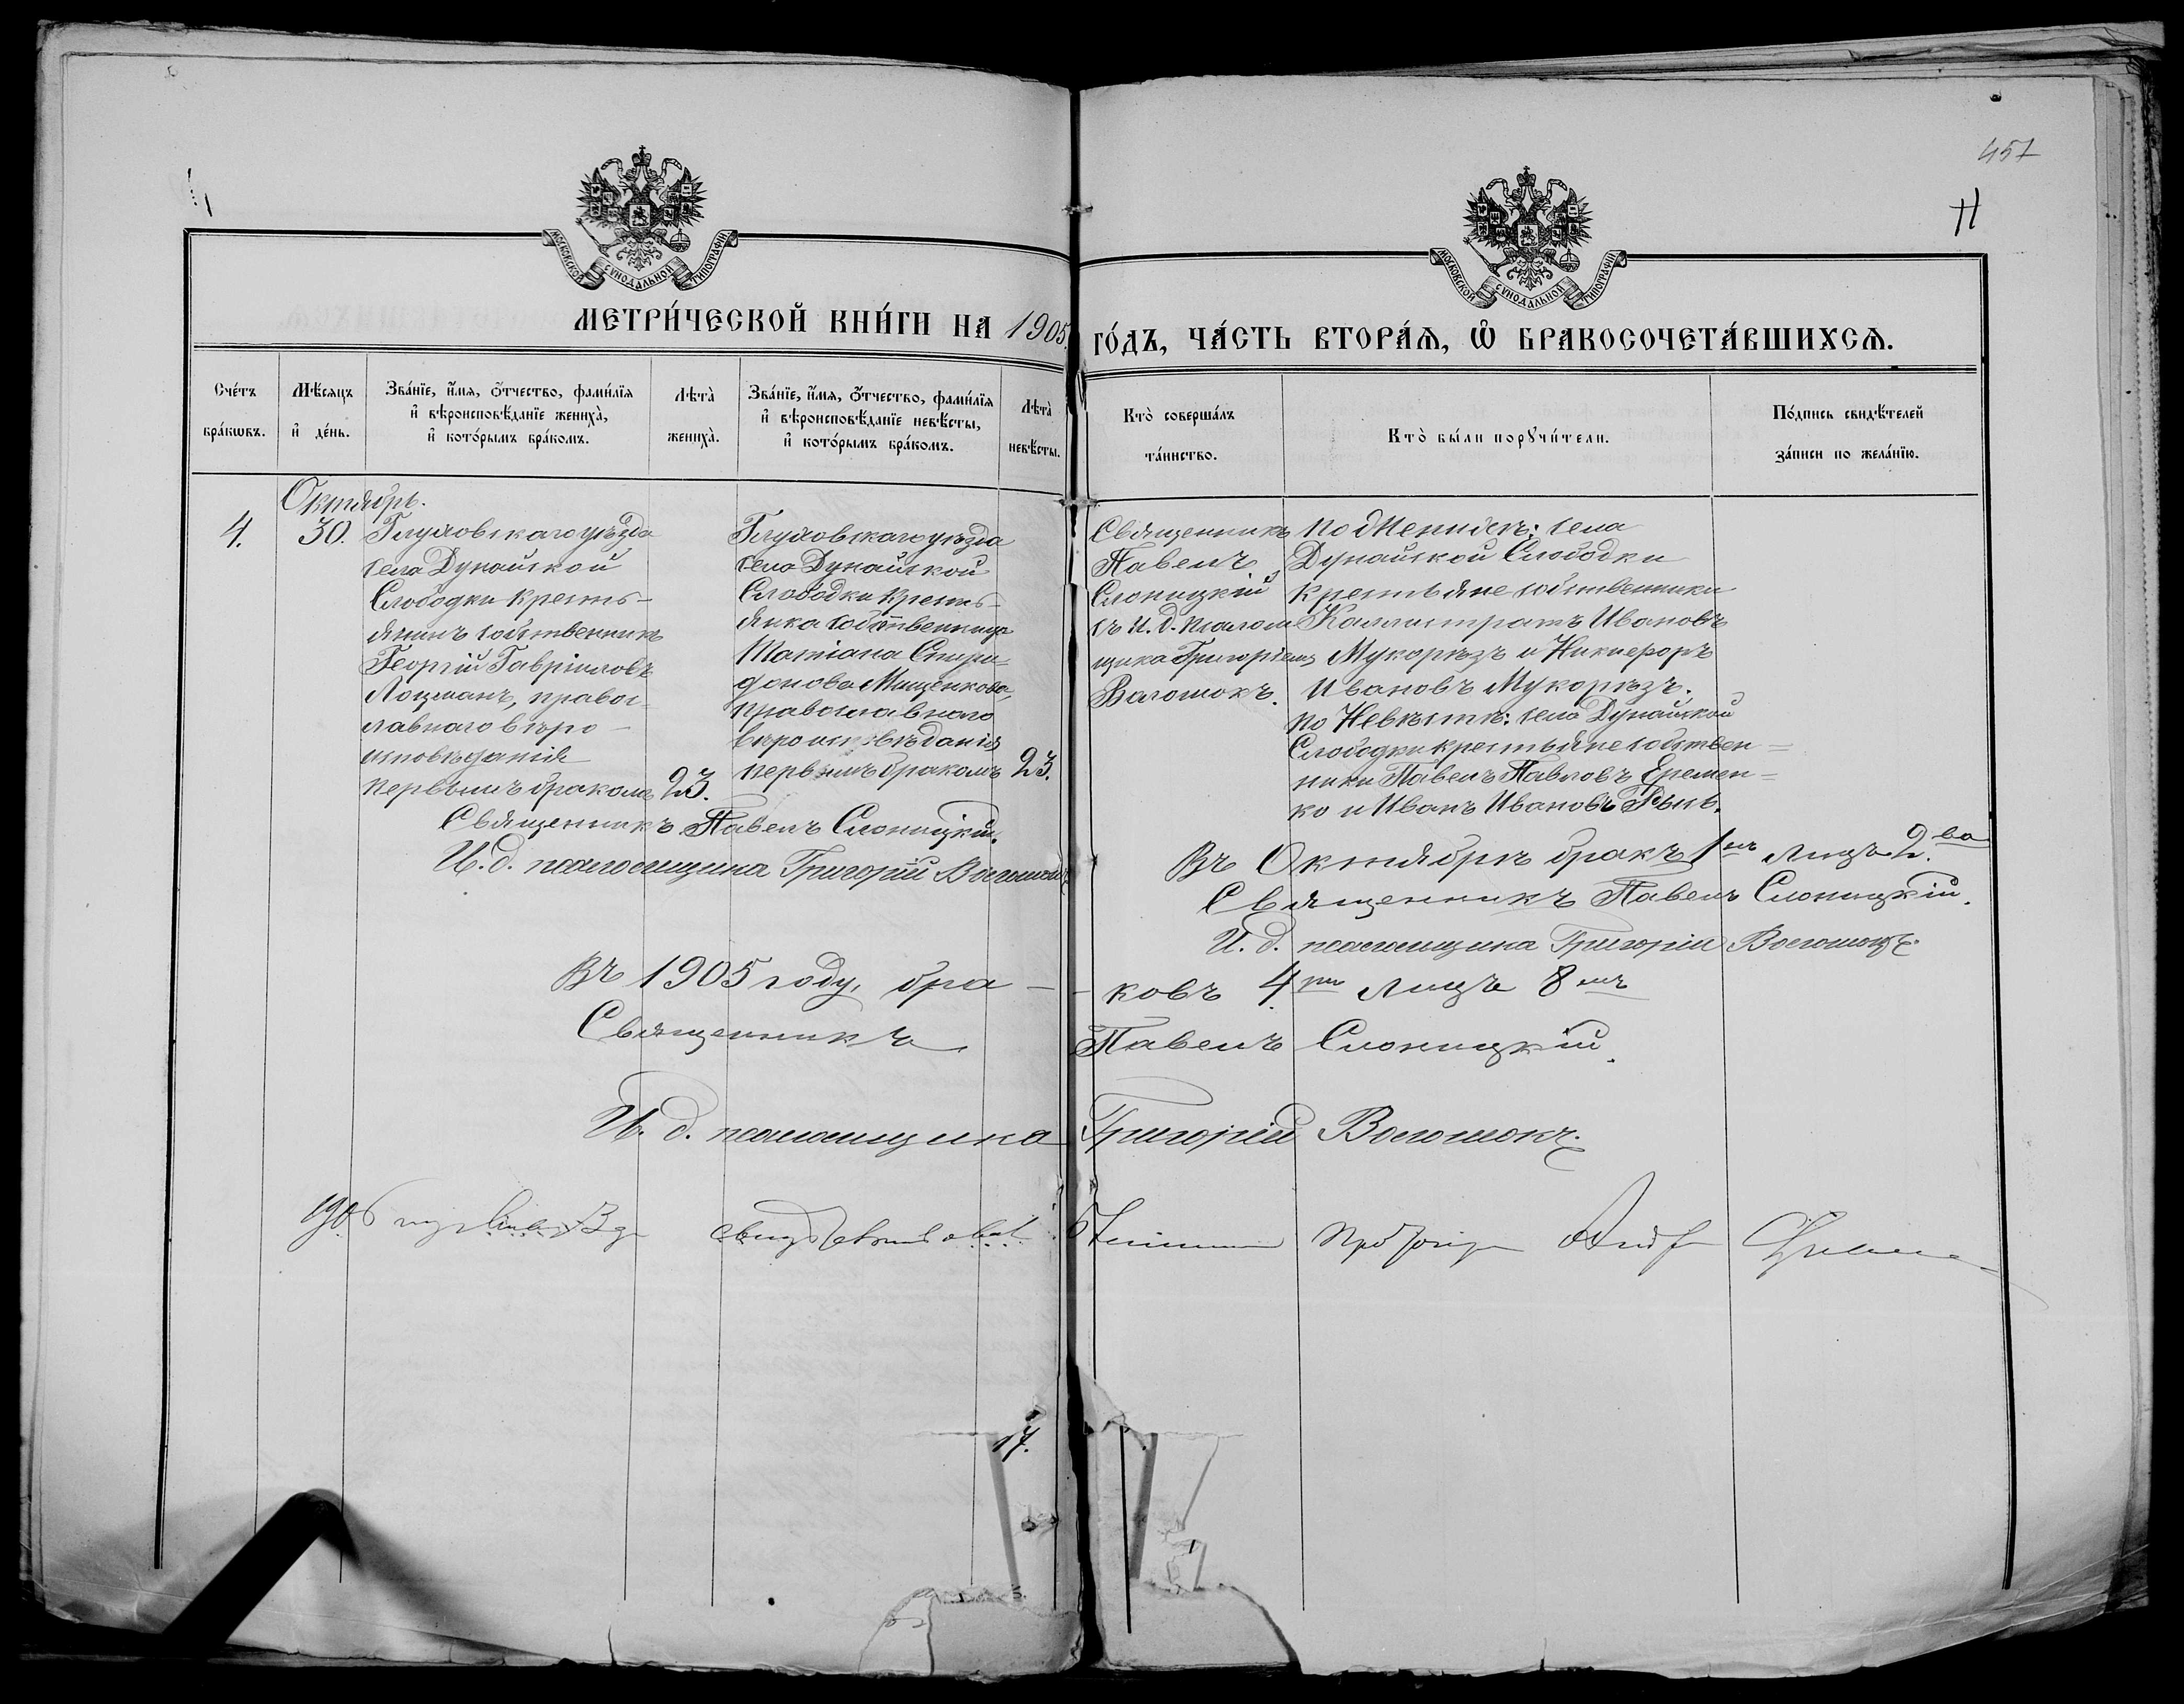 457
11
МОСКОВСКОЙ СУНОДАЛЬНОЙ ТИПОГРАФІИ
МОСКОВСКОЙ СУНОДАЛЬНОЙ ТИПОГРАФІИ
МЕТРИ́ЧЕСКОЙ КНИ́ГИ НА 1905 ГО́ДЪ, ЧА́СТЬ ВТОРА́Я, Ѡ БРАКОСОЧЕТА́ВШИХСЯ.
Сче́тъ
бра́кѡвъ.
Мѣ́сяцъ
и҆ де́нь.
Зва́нїе, и҆́мя, ѻ҆́тчество, фами́лїя
и҆ вѣроисповѣ́данїе жениха̀,
и҆ кото́рымъ бра́комъ.
Лѣта̀
жениха̀.
Зва́нїе, и҆́мя, ѻ҆́тчество, фами́лїя
и҆ вѣроисповѣ́данїе невѣ́сты,
и҆ кото́рымъ бра́комъ.
Лѣта̀
невѣ́сты.
Кто̀ соверша́лъ
та́инство.
Кто̀ бы́ли порꙋчи́тели.
По́дпись свидѣ́телей
за́писи по жела́нїю.
Октябрь.
4.
30.
Глуховскаго уѣзда
села Дунайской
Слободки кресть-
янинъ собственникъ
Георгій Гавріиловъ
Лоцманъ, правос-
лавнаго вѣро-
исповѣданія
первымъ бракомъ
23.
Глуховскаго уѣзда
села Дунайской
Слободки кресть-
янка собственница
Татіана Спири-
донова Мищенкова,
православнаго
вѣроисповѣданія
первымъ бракомъ
23.
Священникъ
Павелъ
Слоницкій
съ И. д. псалом
щика Григоріемъ
Волошокъ.
По Женихѣ: села
Дунайской Слободки
крестьяне собственники
Каллистратъ Ивановъ
Мукорѣзъ и Никифоръ
Ивановъ Мукорѣзъ.
По Невѣстѣ: села Дунайской
Слободки крестьяне собствен=
ники Павелъ Павловъ Еремен=
ко и Иванъ Ивановъ
Священникъ Павелъ Слоницкій.
И. д. псаломщика Григорій Волошокъ
Въ Октябрѣ бракъ 1нъ лицъ 2.ва
Священникъ Павелъ Слоницкій.
И. д. псаломщика Григорій Волошокъ.
Въ 1905 году, бра- -ковъ 4ре лицъ 8мъ
Священникъ Павелъ Слоницкій.
И. д. псаломщика Григорій Волошокъ.
1906
17.